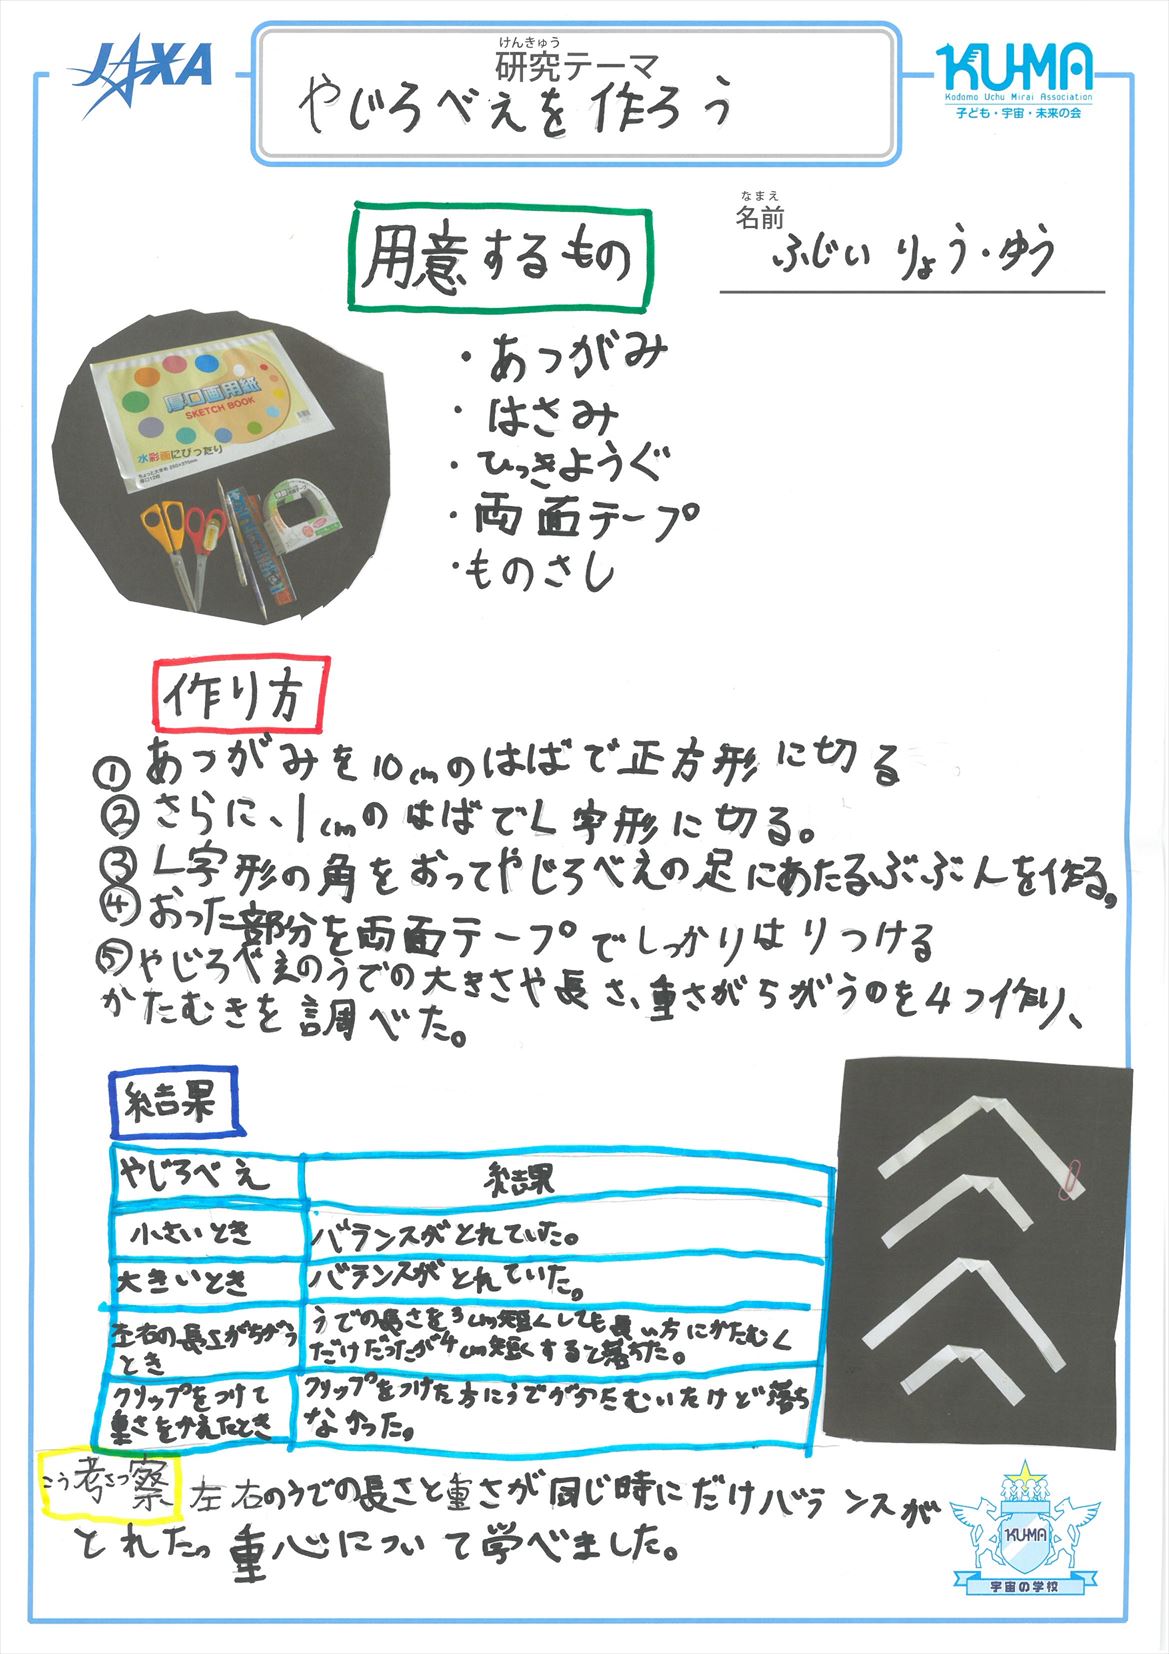 JAXA
けんきゅう
研究テーマ
やじろべえを作ろう
KU-MA
Kodomo Uchu Mirai Association
子ども・宇宙・未来の会
なまえ
名前
ふじい りょう・ゆう
用意するもの
・あつがみ
・はさみ
・ひっきようぐ
・両面テープ
・ものさし
厚口画用紙
SKETCH BOOK
水彩画にぴったり
作り方
①あつがみを10cmのはばで正方形に切る
②さらに、1cmのはばでL字形に切る。
③L字形の角をおってやじろべえの足にあたるぶぶんを作る。
④おった部分を両面テープでしっかりはりつける
⑤やじろべえのうでの大きさや長さ、重さがちがうのを4つ作り、
かたむきを調べた。
結果
やじろべえ 結果
小さいとき バランスがとれていた。
大きいとき バランスがとれていた。
左右の長さがちがう
とき
うでの長さを3cm短くしても長い方にかたむく
だけだったが4cm短くすると落ちた。
クリップをつけて
重さをかえたとき
クリップをつけた方にうでがかたむいたけど落ち
なかった。
こう考さつ察 左右のうでの長さと重さが同じ時にだけバランスが
とれた。重心について学べました。
KU-MA
宇宙の学校